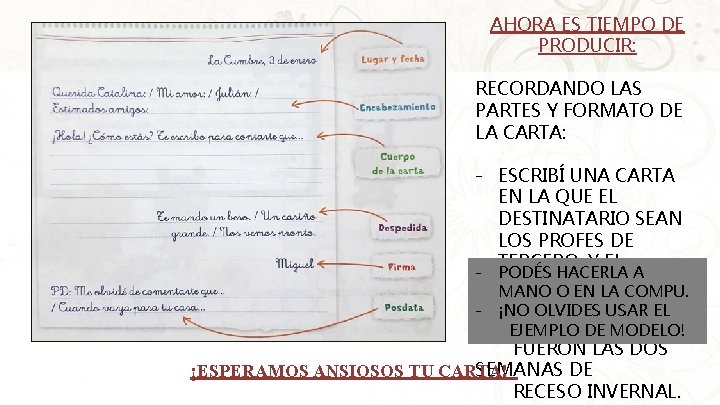 La Cumbre, 3 de enero
Lugar y fecha
Querida Catalina: / Mi amor: / Julián: /
Estimados amigos:
Encabezamiento
¡Hola! ¿Cómo estás? Te escribo para contarte que...
Cuerpo
de la carta
Te mando un beso. / Un cariño
grande. / Nos vemos pronto.
Despedida
Miguel
Firma
PD: Me olvidé de comentarte que...
/ Cuando vaya para tu casa...
Posdata
AHORA ES TIEMPO DE
PRODUCIR:
RECORDANDO LAS
PARTES Y FORMATO DE
LA CARTA:
- ESCRIBÍ UNA CARTA
EN LA QUE EL
DESTINATARIO SEAN
LOS PROFES DE
- PODÉS HACERLA A
MANO O EN LA COMPU.
- ¡NO OLVIDES USAR EL
EJEMPLO DE MODELO!
FUERON LAS DOS
SEMANAS DE
RECESO INVERNAL.
¡ESPERAMOS ANSIOSOS TU